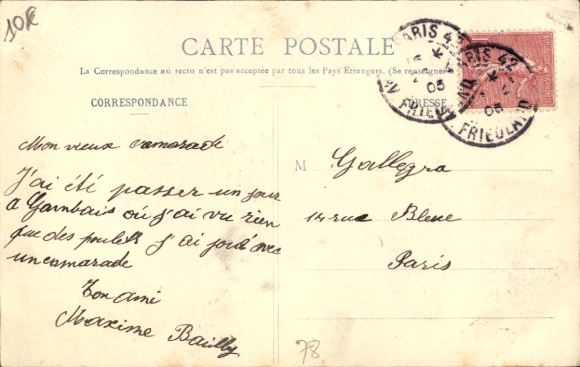 10€
CARTE POSTALE
La Correspondance au recto n'est pas acceptée par tous les Pays Etrangers. (Se renseigner
CORRESPONDANCE
ADRESSE
PARIS 42
05
AV. FRIEDLAND
PARIS 42
05
FRIEDLAND
Mon vieux camarade
J'ai été passer un jour
a Gambais où j'ai vu rien
que des poulets j'ai joué avec
un camarade
Ton ami
Maxime Bailly
M Gallegra
14 rue Bleue
Paris
78